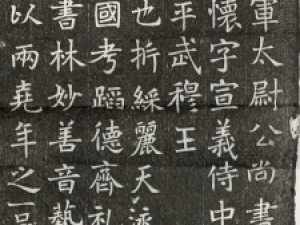 軍太尉公尚書
懷字宣義侍中
平武穆王
也折綵麗天
國考蹈德齊礼
書林妙善音藝
以兩堯年之一